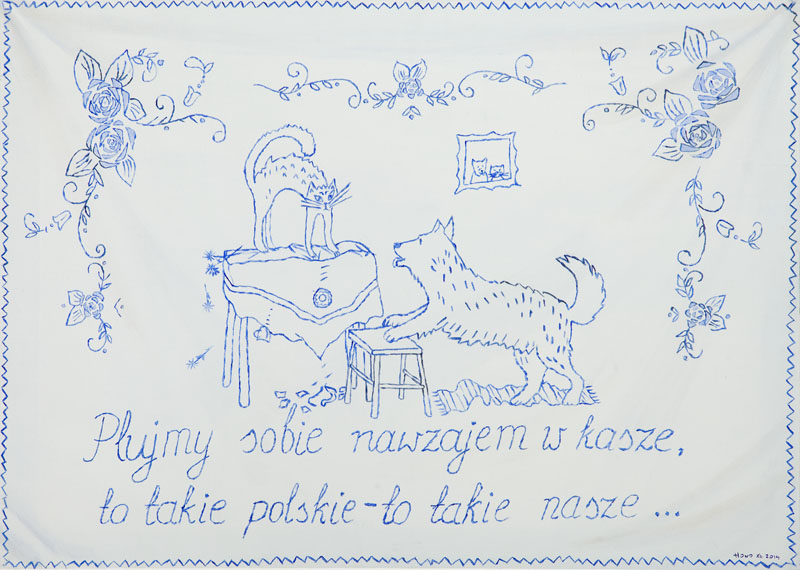 Plujmy sobie nawzajem w kasze,
to takie polskie - to takie nasze ...